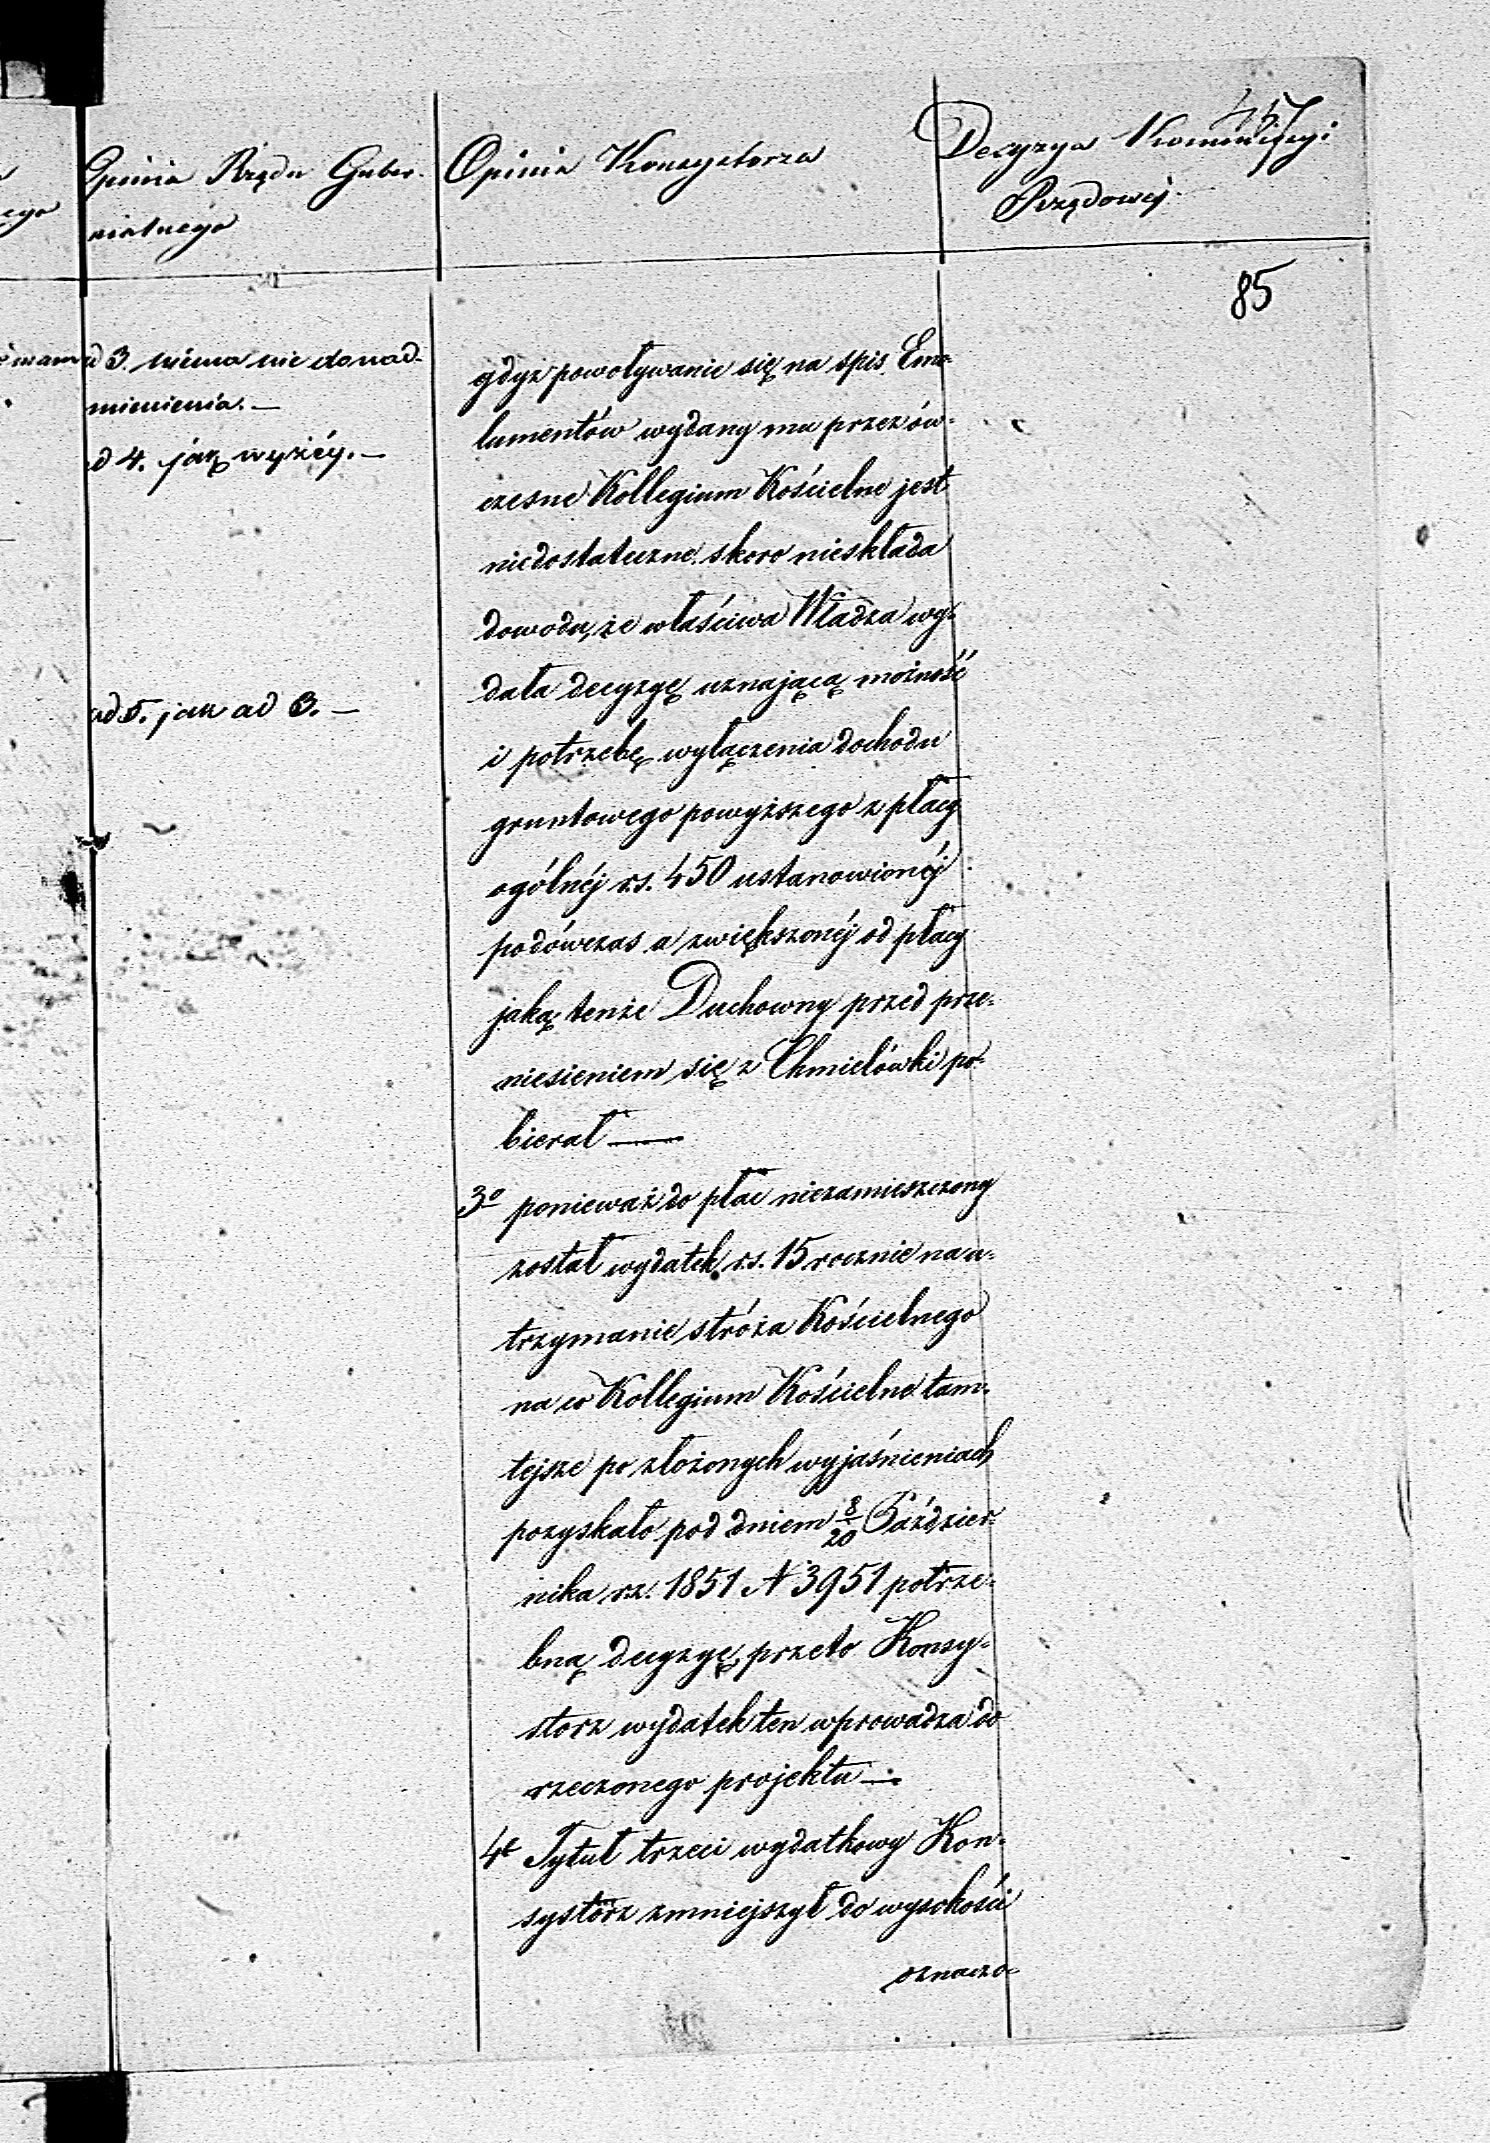 457
Opinia Rządu Guber-
nialnego
Opinia Konsystorza
Decyzya Kommissyi
Rządowéj
85
ad 3. niema nic do nad-
mienienia. —
ad 4. jak wyżéj. —
ad 5. jak ad 3. —
gdyż powoływanie się na spis Emo-
lumentów wydany mu przez ów-
czesne Kollegium Kościelne jest
niedostateczne skoro nieskłada
dowodu, że właściwa Władza wy-
dała decyzyę uznającą możność
i potrzebę wyłączenia dochodu
gruntowego powyższego z płacy
ogólnéj rs. 450 ustanowionéj
podówczas a zwiększonéj od płacy
jaką tenże Duchowny przed prze-
niesieniem się z Chmielówki po-
bierał —
3o ponieważ do płac niezamieszczony
został wydatek rs. 15 rocznie na u-
trzymanie stróża Kościelnego
na co Kollegium Kościelne tam-
tejsze po złożonych wyjaśnieniach
pozyskało pod dniem 8/20 Paździer-
nika rz. 1851 N 3951 potrze-
bną decyzyę, przeto Konsy-
storz wydatek ten wprowadza do
rzeczonego projektu —
4o Tytuł trzeci wydatkowy Kon-
systorz zmniejszył do wysokości
oznaczo-